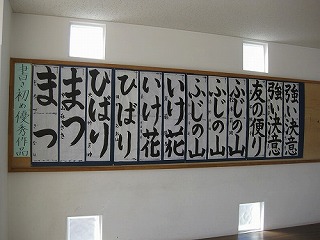 書き初め優秀作品
まつ
まつ
ひばり
ひばり
いけ花
いけ花
ふじの山
ふじの山
ふじの山
友の便り
強い決意
強い決意